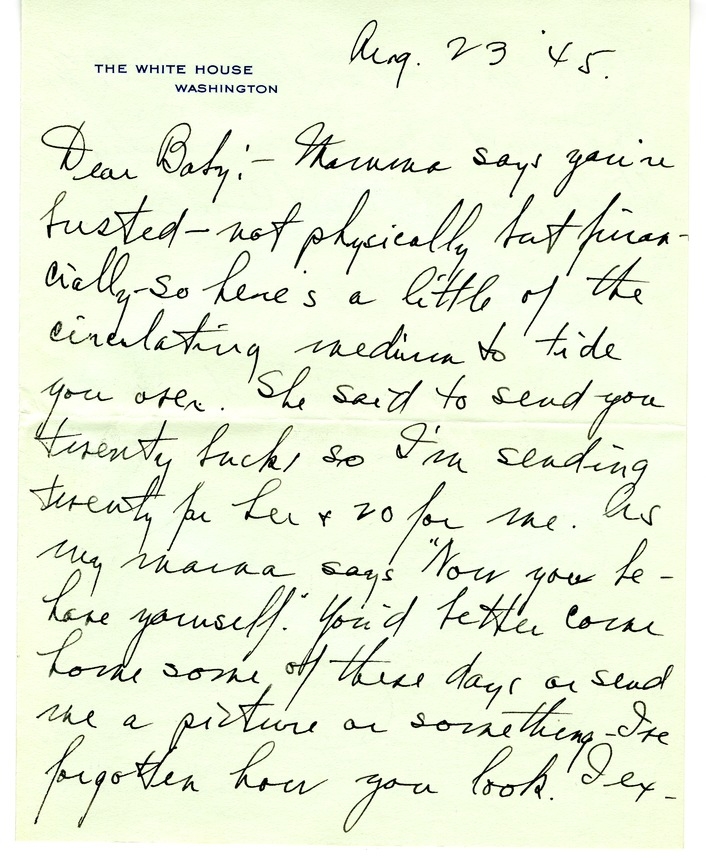 Aug. 23 '45.
THE WHITE HOUSE
WASHINGTON
Dear Baby:- Mamma says you're
busted-not physically but finan-
cially-so here's a little of the
circulating medium to tide
you over. She said to send you
twenty bucks so I'm sending
twenty for her & 20 for me. As
my mama says "Now you be-
have yourself." You'd better come
home some of these days or send
me a picture or something-I've
forgotten how you look. I ex-